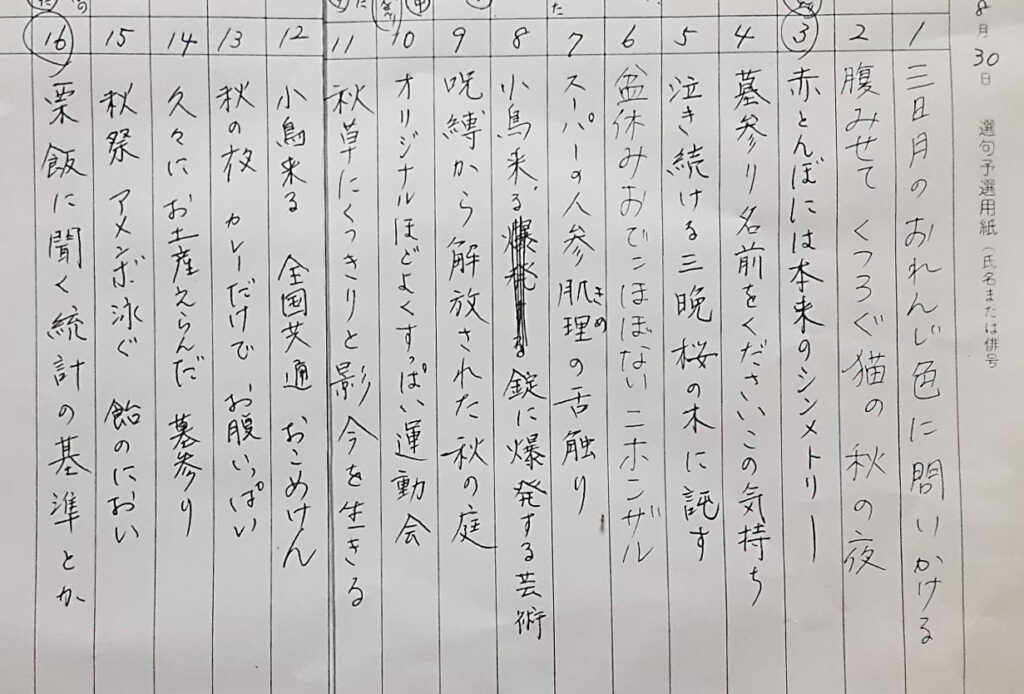 8月30日 選句予選用紙（氏名または俳号）
1 三日月のおれんじ色に問いかける
2 腹みせて くつろぐ猫の 秋の夜
3 赤とんぼには本来のシンメトリー
4 墓参り名前をくださいこの気持ち
5 泣き続ける三晩桜の木に託す
6 盆休みおでこほぼないニホンザル
7 スーパーの人参肌理の舌触り
きめの
8 小鳥来る爆発する錠に爆発する芸術
9 呪縛から解放された秋の庭
10 オリジナルほどよくすっぱい運動会
11 秋草にくっきりと影今を生きる
12 小鳥来る 全国共通 おこめけん
13 秋の枚 カレーだけで お腹いっぱい
14 久々に お土産えらんだ 墓参り
15 秋祭 アメンボ泳ぐ 飴のにおい
16 栗飯に聞く統計の基準とか